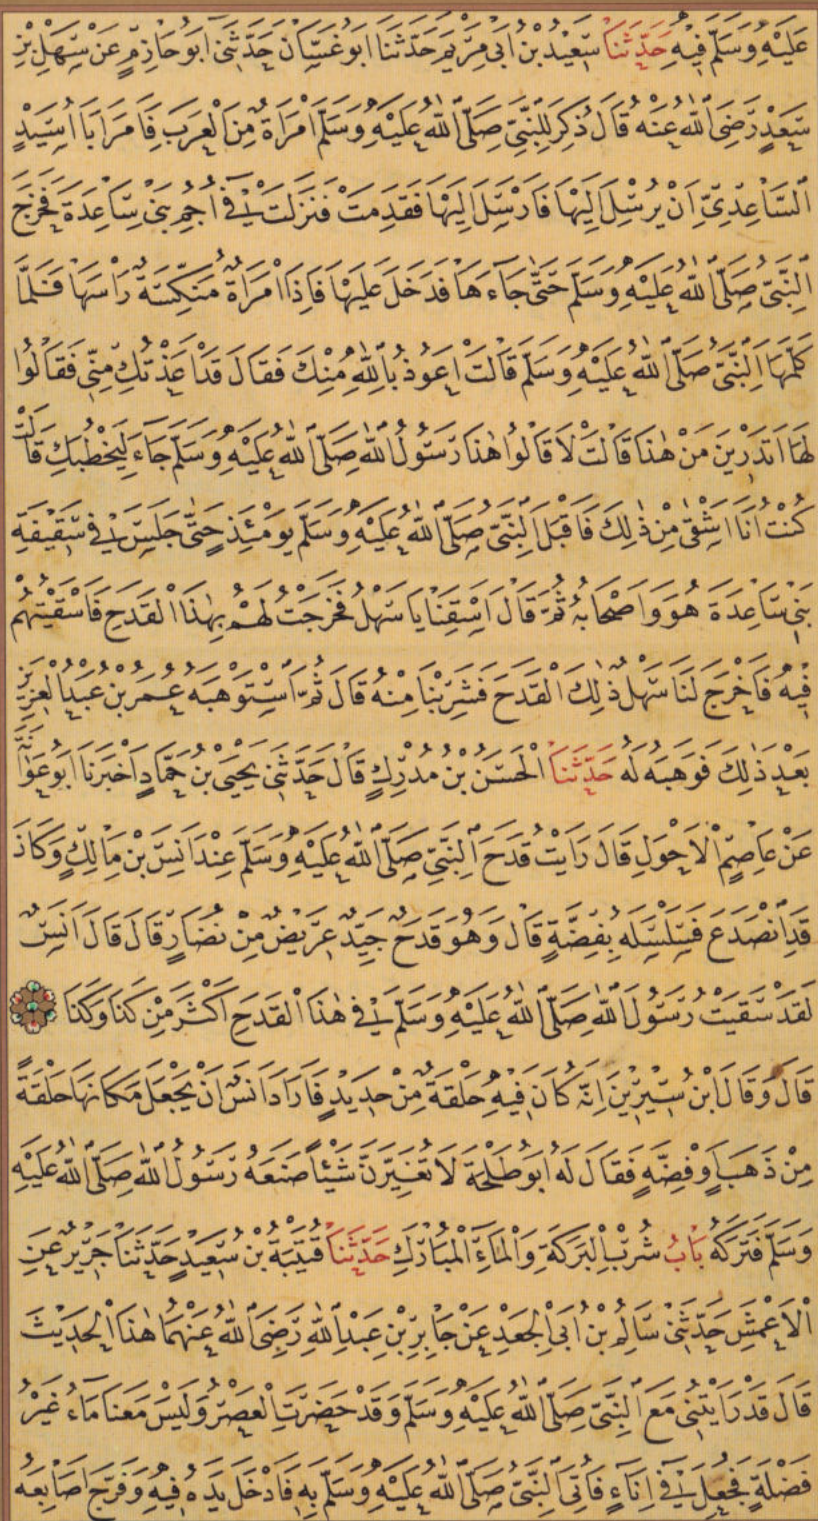 عَلَيْهِ وَسَلَّمَ فِيهِ حَدَّثَنَا سَعِيدُ بْنُ أَبِي مَرْيَمَ حَدَّثَنَا أَبُو غَسَّانَ حَدَّثَنِي أَبُو حَازِمٍ عَنْ سَهْلِ بْنِ
سَعْدٍ رَضِيَ اللّٰهُ عَنْهُ قَالَ ذُكِرَ لِلنَّبِيِّ صَلَّى اللّٰهُ عَلَيْهِ وَسَلَّمَ امْرَأَةٌ مِنَ الْعَرَبِ فَأَمَرَ أَبَا أُسَيْدٍ
السَّاعِدِيَّ أَنْ يُرْسِلَ إِلَيْهَا فَأَرْسَلَ إِلَيْهَا فَقَدِمَتْ فَنَزَلَتْ فِي أُجُمِ بَنِي سَاعِدَةَ فَخَرَجَ
النَّبِيُّ صَلَّى اللّٰهُ عَلَيْهِ وَسَلَّمَ حَتَّى جَاءَهَا فَدَخَلَ عَلَيْهَا فَإِذَا امْرَأَةٌ مُنَكِّسَةٌ رَأْسَهَا فَلَمَّا
كَلَّمَهَا النَّبِيُّ صَلَّى اللّٰهُ عَلَيْهِ وَسَلَّمَ قَالَتْ أَعُوذُ بِاللّٰهِ مِنْكَ فَقَالَ قَدْ أَعَذْتُكِ مِنِّي فَقَالُوا
لَهَا أَتَدْرِينَ مَنْ هٰذَا قَالَتْ لَا قَالُوا هٰذَا رَسُولُ اللّٰهِ صَلَّى اللّٰهُ عَلَيْهِ وَسَلَّمَ جَاءَ لِيَخْطُبَكِ قَالَتْ
كُنْتُ أَنَا أَشْقَى مِنْ ذٰلِكَ فَأَقْبَلَ النَّبِيُّ صَلَّى اللّٰهُ عَلَيْهِ وَسَلَّمَ يَوْمَئِذٍ حَتَّى جَلَسَ فِي سَقِيفَةِ
بَنِي سَاعِدَةَ هُوَ وَأَصْحَابُهُ ثُمَّ قَالَ اسْقِنَا يَا سَهْلُ فَخَرَجْتُ لَهُمْ بِهٰذَا الْقَدَحِ فَأَسْقَيْتُهُمْ
فِيهِ فَأَخْرَجَ لَنَا سَهْلٌ ذٰلِكَ الْقَدَحَ فَشَرِبْنَا مِنْهُ قَالَ ثُمَّ اسْتَوْهَبَهُ عُمَرُ بْنُ عَبْدِ الْعَزِيزِ
بَعْدَ ذٰلِكَ فَوَهَبَهُ لَهُ حَدَّثَنَا الْحَسَنُ بْنُ مُدْرِكٍ قَالَ حَدَّثَنِي يَحْيَى بْنُ حَمَّادٍ أَخْبَرَنَا أَبُو عَوَانَةَ
عَنْ عَاصِمٍ الْأَحْوَلِ قَالَ رَأَيْتُ قَدَحَ النَّبِيِّ صَلَّى اللّٰهُ عَلَيْهِ وَسَلَّمَ عِنْدَ أَنَسِ بْنِ مَالِكٍ وَكَانَ
قَدِ انْصَدَعَ فَسَلْسَلَهُ بِفِضَّةٍ قَالَ وَهُوَ قَدَحٌ جَيِّدٌ عَرِيضٌ مِنْ نُضَارٍ قَالَ قَالَ أَنَسٌ
لَقَدْ سَقَيْتُ رَسُولَ اللّٰهِ صَلَّى اللّٰهُ عَلَيْهِ وَسَلَّمَ فِي هٰذَا الْقَدَحِ أَكْثَرَ مِنْ كَذَا وَكَذَا
قَالَ وَقَالَ ابْنُ سِيرِينَ إِنَّهُ كَانَ فِيهِ حَلْقَةٌ مِنْ حَدِيدٍ فَأَرَادَ أَنَسٌ أَنْ يَجْعَلَ مَكَانَهَا حَلْقَةً
مِنْ ذَهَبٍ أَوْ فِضَّةٍ فَقَالَ لَهُ أَبُو طَلْحَةَ لَا تُغَيِّرَنَّ شَيْئًا صَنَعَهُ رَسُولُ اللّٰهِ صَلَّى اللّٰهُ عَلَيْهِ
وَسَلَّمَ فَتَرَكَهُ بَابُ شُرْبِ الْبَرَكَةِ وَالْمَاءِ الْمُبَارَكِ حَدَّثَنَا قُتَيْبَةُ بْنُ سَعِيدٍ حَدَّثَنَا جَرِيرٌ عَنِ
الْأَعْمَشِ حَدَّثَنِي سَالِمُ بْنُ أَبِي الْجَعْدِ عَنْ جَابِرِ بْنِ عَبْدِ اللّٰهِ رَضِيَ اللّٰهُ عَنْهُمَا هٰذَا الْحَدِيثَ
قَالَ قَدْ رَأَيْتُنِي مَعَ النَّبِيِّ صَلَّى اللّٰهُ عَلَيْهِ وَسَلَّمَ وَقَدْ حَضَرَتِ الْعَصْرُ وَلَيْسَ مَعَنَا مَاءٌ غَيْرُ
فَضْلَةٍ فَجُعِلَ فِي إِنَاءٍ فَأُتِيَ النَّبِيُّ صَلَّى اللّٰهُ عَلَيْهِ وَسَلَّمَ بِهِ فَأَدْخَلَ يَدَهُ فِيهِ وَفَرَّجَ أَصَابِعَهُ